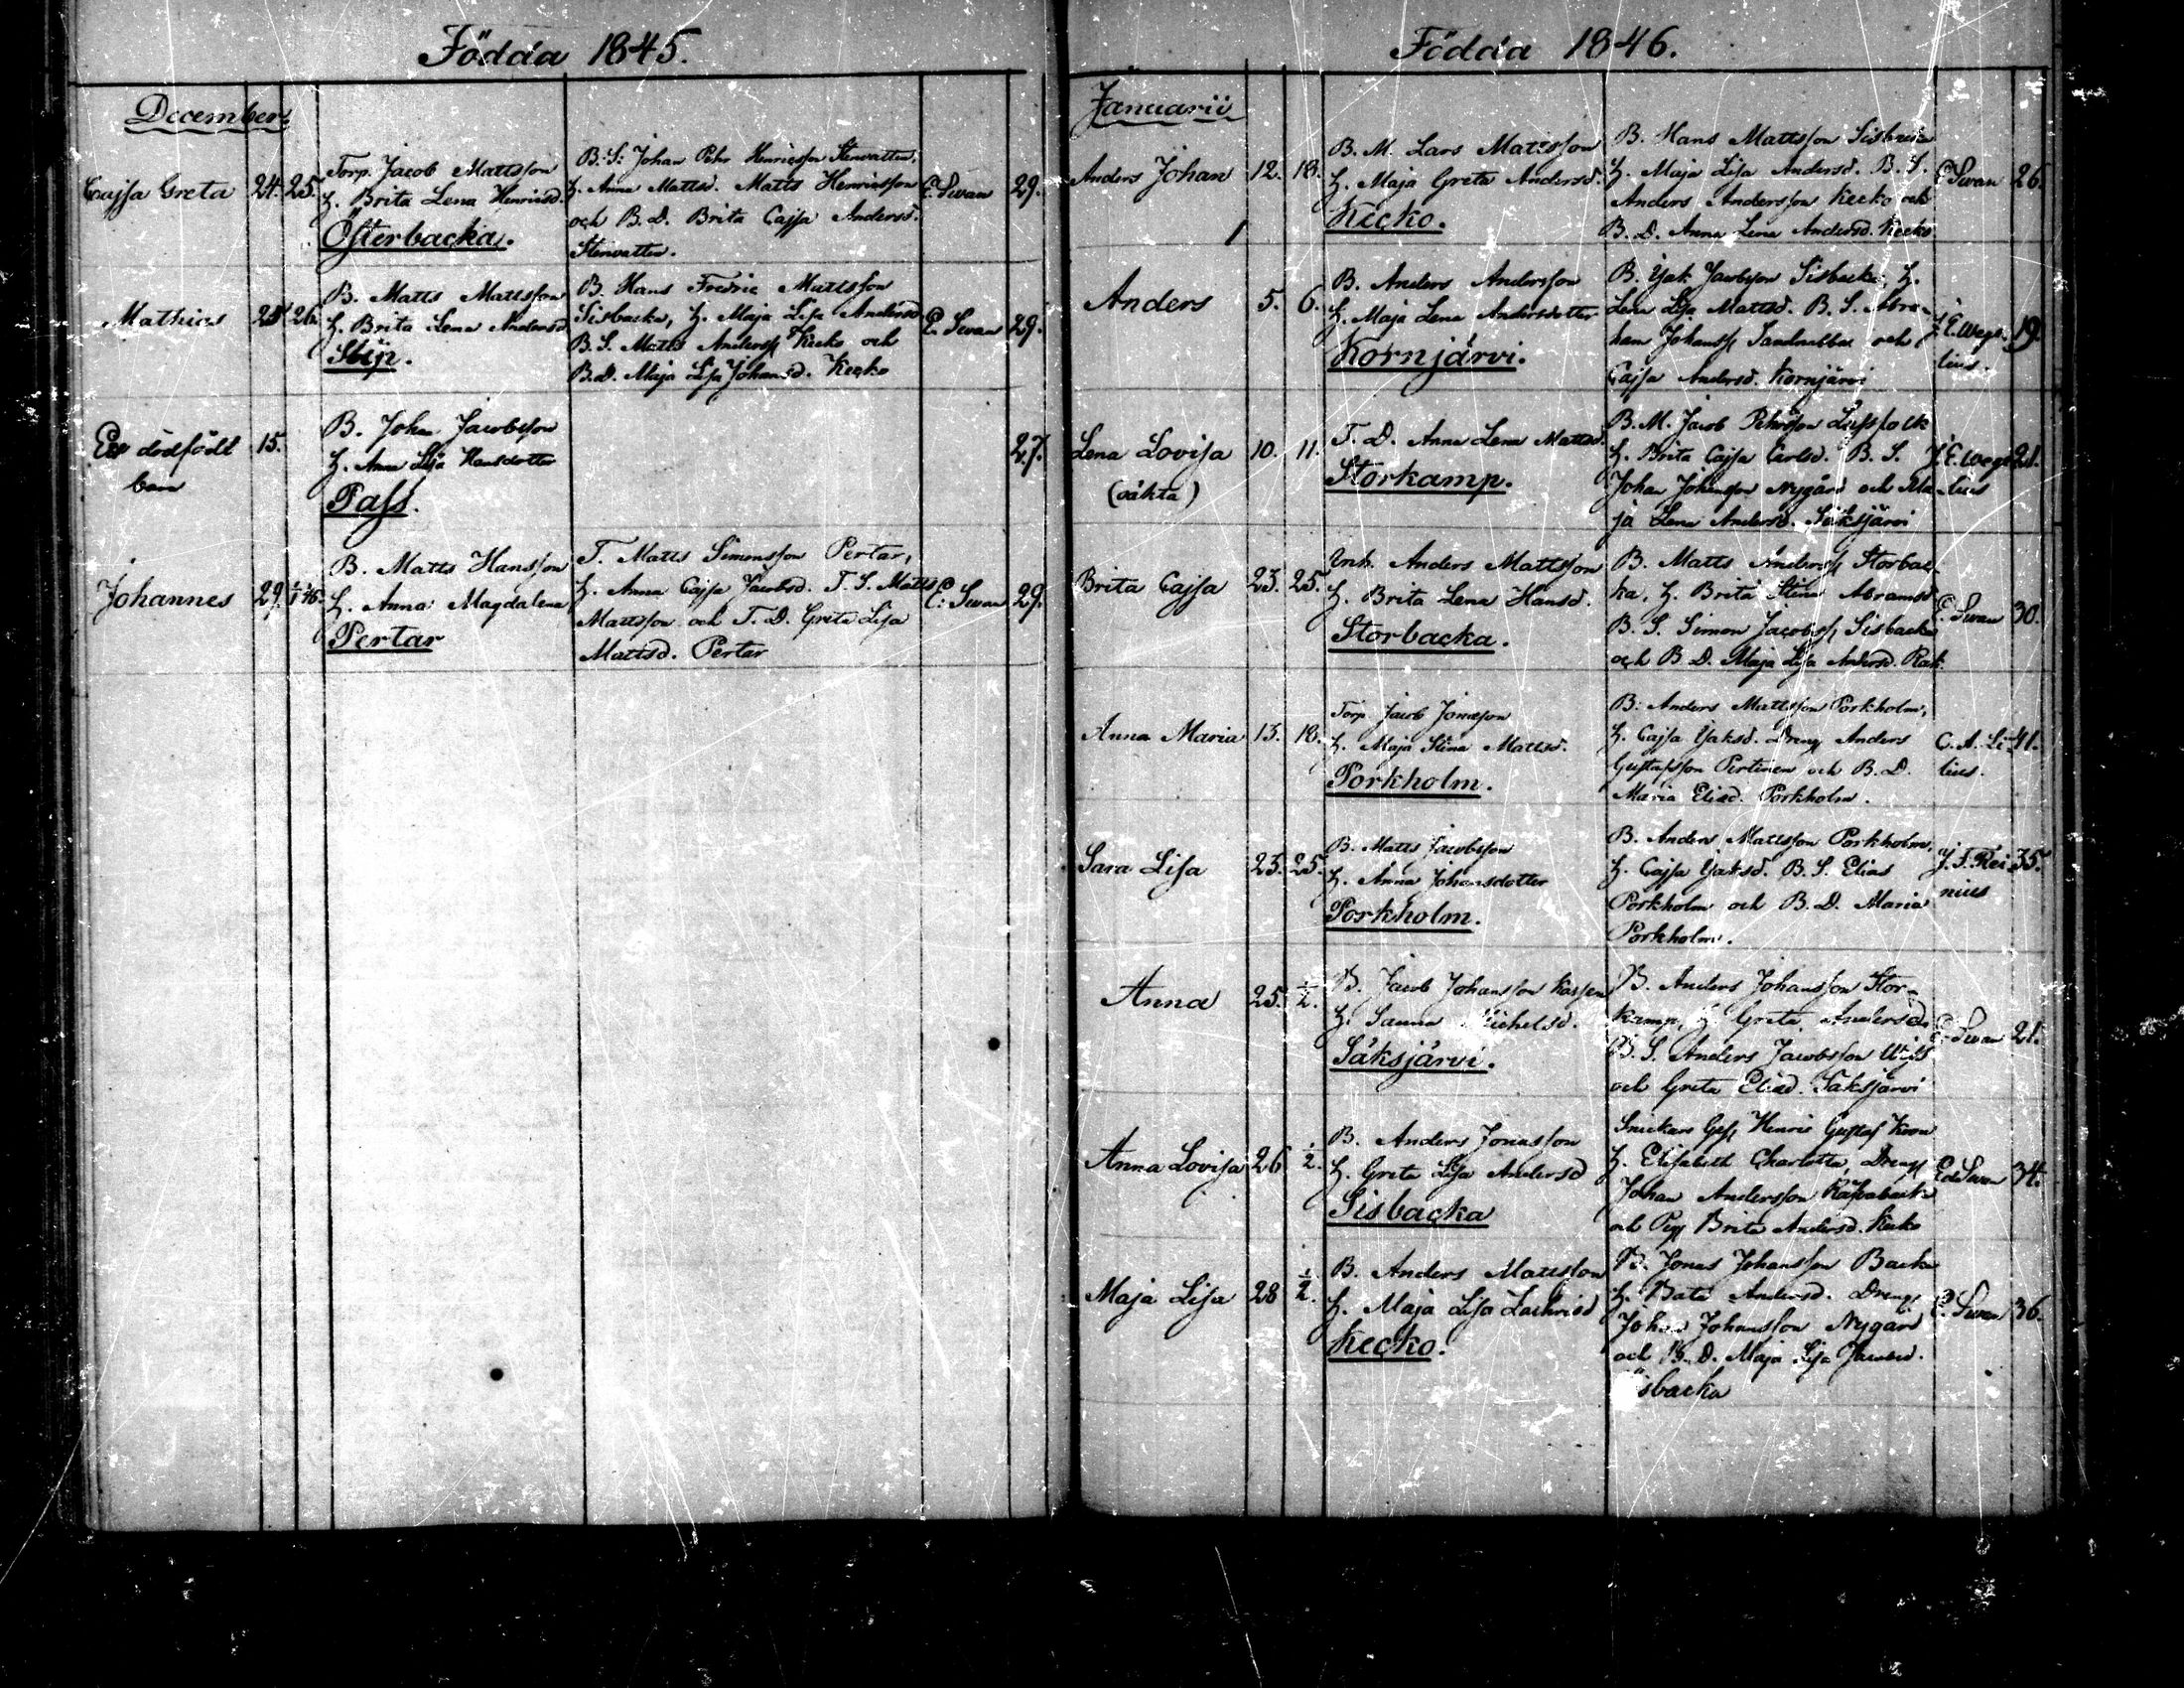 Födda 1845.
December
Cajsa Greta 24. 25.
Torp. Jacob Mattsson
H. Brita Lena Henricsd.
Österbacka.
B. S. Johan Pehr Henricsson Stenvatten.
H. Anna Mattsd. Matts Henricsson
och B. D. Brita Cajsa Andersd.
Stenvatten.
E. Svan 29.
Mathias 26.
B. Matts Mattsson
H. Brita Lena Andersd.
Slip.
B. Hans Fredric Mattsson
Sisbacka, H. Maja Lisa Andersd.
B. S. Matts Anderss. Kecko och
B. D. Maja Lisa Johansd. Kecko
E. Svan 29.
Ett dödfödt 15.
barn
B. Johan Jacobsson
H. Anna Lisa Hansdotter
Pass.
27.
Johannes 29. 1/1 46.
B. Matts Hansson
H. Anna Magdalena
Pertar
T. Matts Simonsson Pertar,
H. Anna Cajsa Jacobsd. T. S. Matts
Mattsson och T. D. Greta Lisa
Mattsd. Pertar
E. Svan 29.
Födda 1846.
Januarii
Anders Johan 12. 18.
B. M. Lars Mattsson
H. Maja Greta Andersd.
Kecko.
B. Hans Mattsson Sisbacka
H. Maja Lisa Andersd. B. S.
Anders Andersson Kecko och
B. D. Anna Lena Andersd. Kecko
E Svan 26.
Anders 5. 6.
B. Anders Andersson
H. Maja Lena Andersdotter
Kornjärvi.
B. Isak Jacobsson Sisbacka, H.
Lena Lisa Mattsd. B. S. Abra-
ham Johanss. Sandnabba och
Cajsa Andersd. Kornjärvi
J. E. Wege-
lius. 19.
Lena Lovisa 10. 11.
(oäkta)
T. D. Anna Lena Mattsd.
Storkamp.
B. M. Jacob Pehrsson
H. Brita Cajsa Carlsd. B. S.
Johan Johansson Nygård och Ma-
ja Lena Andersd. Säksjärvi
J. E. Wege-
lius 21.
Brita Cajsa 23. 25.
Anders Mattsson
H. Brita Lena Hansd.
Storbacka.
B. Matts Anderss. Storbac-
ka, H. Brita Stina Abramsd.
B. S. Simon Jacobss. Sisbacka
och B. D. Maja Lisa Andersd.
E. Svan 30.
Anna Maria 13. 18.
Torp. Jacob Jonasson
H. Maja Stina Mattsd.
Porkholm.
B. Anders Mattsson Porkholm,
H. Cajsa Isaksd. Dreng Anders
Gustafsson Pertinen och B. D.
Maria Eliæd. Porkholm.
C. A. Li-
lius. 41.
Sara Lisa 23. 25.
B. Matts Jacobsson
H. Anna Johansdotter
Porkholm.
B. Anders Mattsson Porkholm,
H. Cajsa Isaksd. B. S. Elias
Porkholm och B. D. Maria
Porkholm.
J. F. Rei-
nius 35.
Anna 25. 1/2.
B. Jacob Johansson
H. Sanna Michelsd.
Säksjärvi.
B. Anders Johansson Stor-
kamp, H. Greta Andersd.
B. S. Anders Jacobsson
och Greta Eliæd. Säksjärvi
E. Svan 21.
Anna Lovisa 26 1/2.
B. Anders Jonasson
H. Greta Lisa Andersd
Sisbacka
Snickare Ges. Henric Gustaf
H. Elisabeth Charlotta, Dreng
Johan Andersson
och Pig. Brita Andersd. Kecko
Svan 34.
Maja Lisa 28 1/2.
B. Anders Mattsson
H. Maja Lisa Zachrisd
Kecko.
B. Jonas Johansson Backa
H. Andersd. Dreng
Johan Johansson Nygård
och B. D. Maja Lisa Jacobsd.
Sisbacka
E. Svan 36.